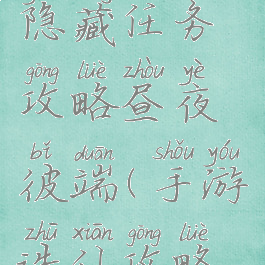 隐藏任务
gōng lüè zhòu yè
攻略昼夜
bǐ duān ( shǒu yóu
彼端(手游
zhū xiān gōng lüè
诛仙攻略